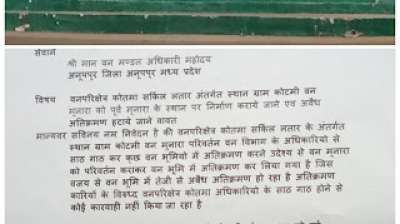 सेवाने
श्री मान वन मण्डल अधिकारी महोदय
अनूपपुर जिला अनूपपुर मध्य प्रदेश
विषय वनपरिक्षेत्र कोतमा सर्किल लतार अंतर्गत स्थान ग्राम कोटमी वन
मुनारा को पूर्व मुनारा के स्थान पर निर्माण कराये जाने एवं अवैध
अतिक्रमण हटाये जाने वावत
मान्यवर सविनय नम्र निवेदन है की वनपरिक्षेत्र कोतमा सर्किल लतार के अंतर्गत
स्थान ग्राम कोटमी वन मुनारा परिवर्तन वन विभाग के अधिकारियो से
साठ गाठ कर कुछ वन भूमियो में अतिक्रमण करने उदेश्य से वन मुनारा
को परिवर्तन कराकर वन भूमि में अतिक्रमण कर लिया गया है जिस
वजय से वन भूमि में तेजी से अवैध अतिक्रमण हो रहा है अतिक्रमण
कारियों के विरूध्द वनपरिक्षेत्र कोतमा अधिकारियो के साठ गाठ होने से
कोई कारवाही नहीं किया जा रहा है